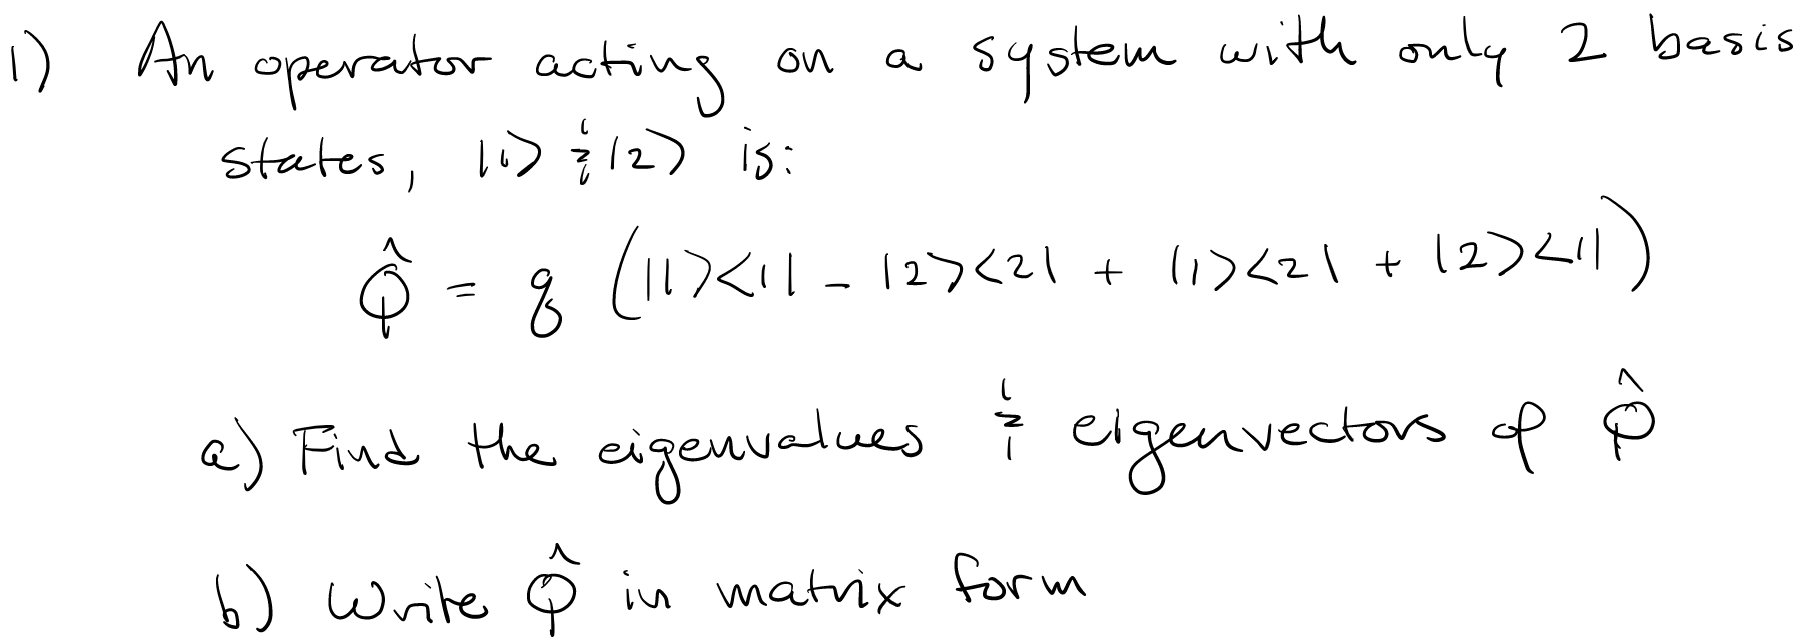 1) An operator acting on a system with only 2 basis
states, |1> & |2> is:
Q̂ = q (|1><1| - |2><2| + |1><2| + |2><1|)
a) Find the eigenvalues & eigenvectors of Q̂
b) Write Q̂ in matrix form